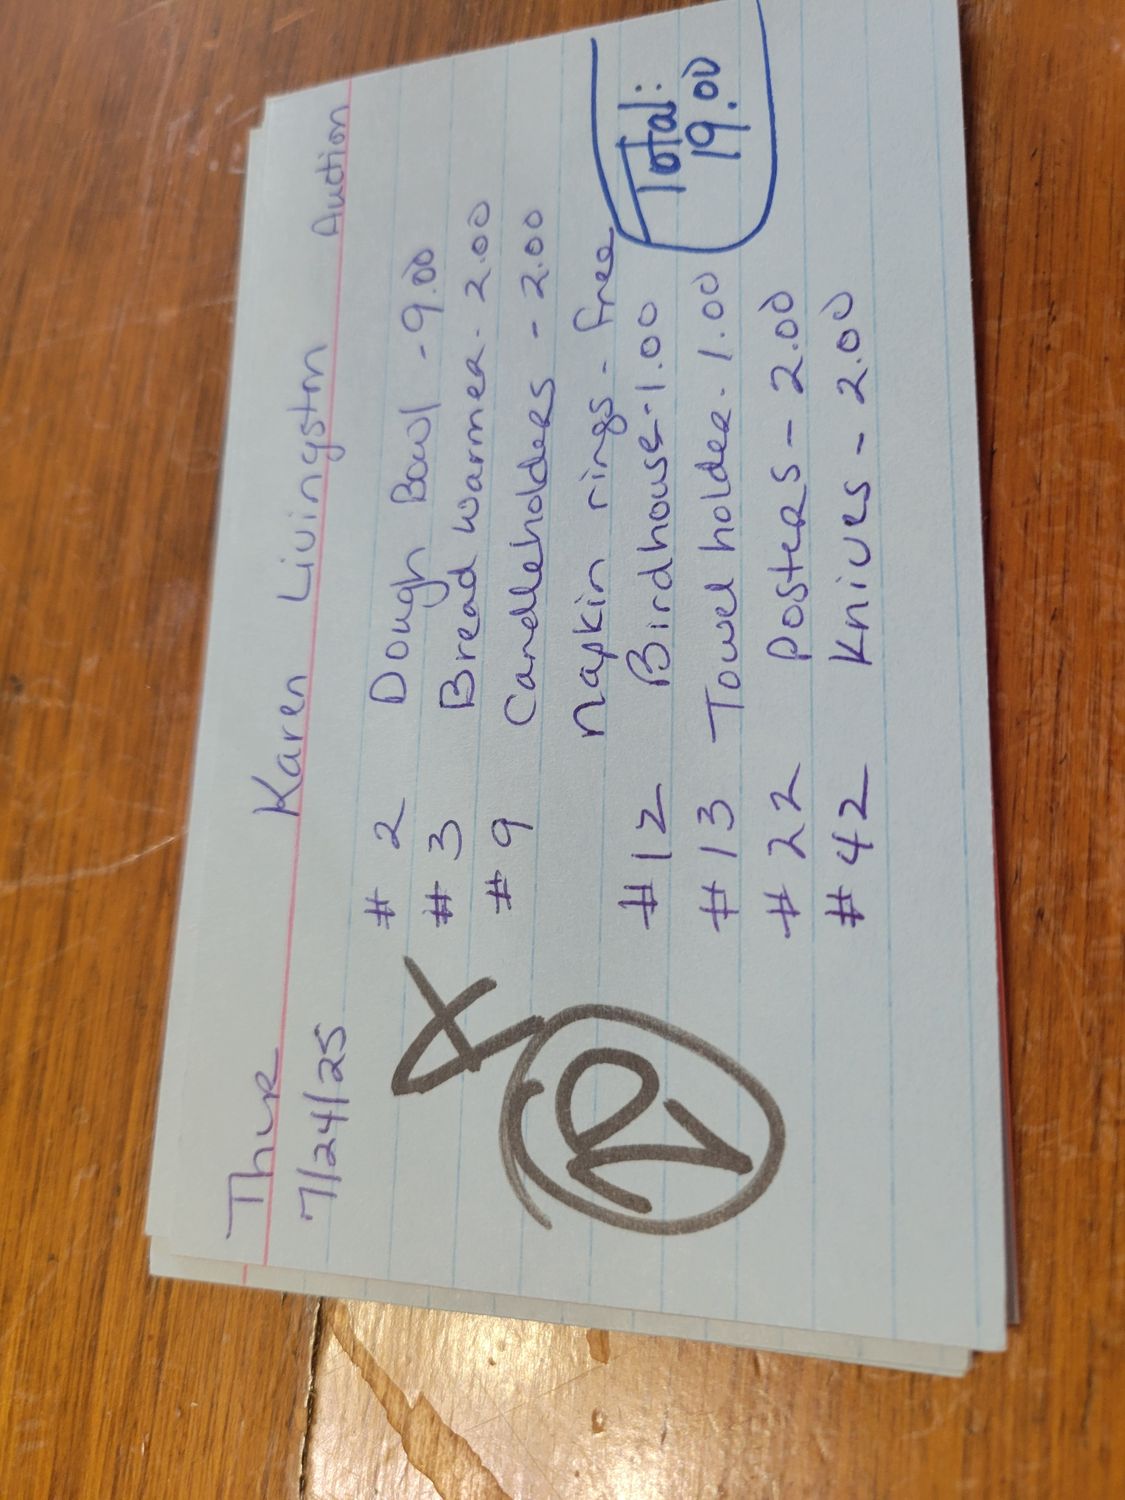 Thur Karen Livingston Auction
7/24/25
# 2 Dough Bowl - 9.00
# 3 Bread warmer - 2.00
# 9 Candleholders - 2.00
napkin rings - free
# 12 Birdhouse - 1.00
# 13 Towel holder - 1.00
# 22 Posters - 2.00
# 42 Knives - 2.00
Total:
19.00